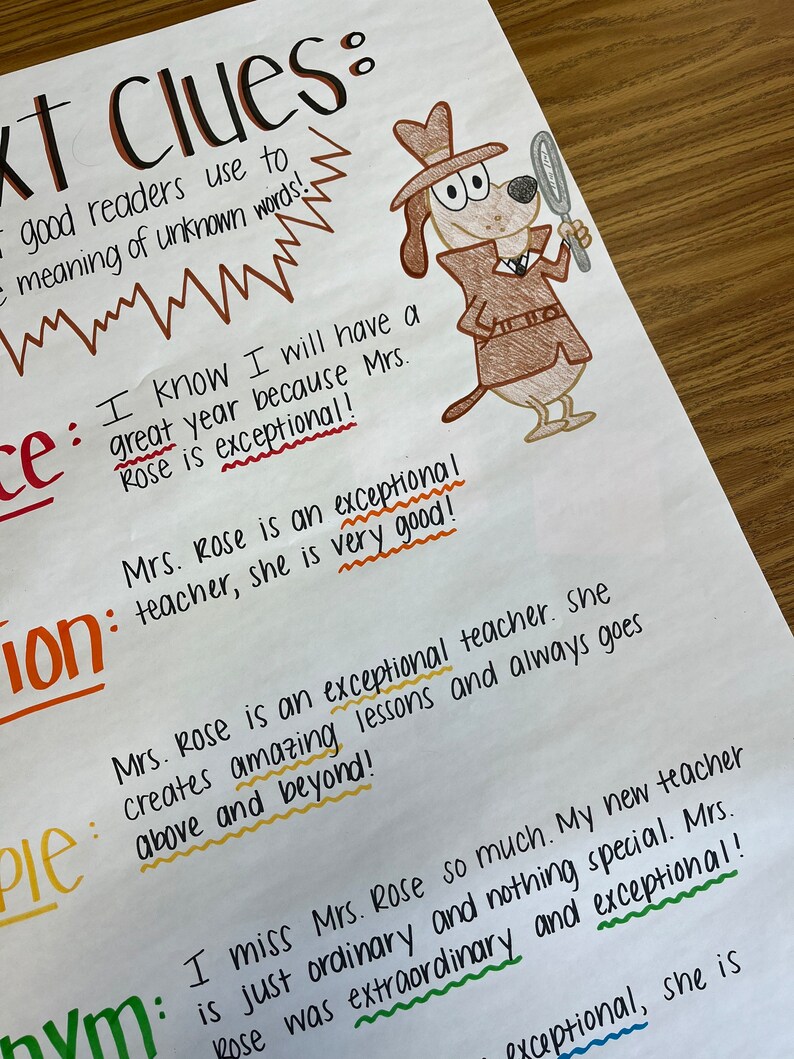 xt Clues:
good readers use to
meaning of unknown words!
ce: I know I will have a
great year because Mrs.
Rose is exceptional!
ion: Mrs. Rose is an exceptional
teacher, she is very good!
ple: Mrs. Rose is an exceptional teacher. She
creates amazing lessons and always goes
above and beyond!
nym: I miss Mrs. Rose so much. My new teacher
is just ordinary and nothing special. Mrs.
Rose was extraordinary and exceptional!
exceptional, she is